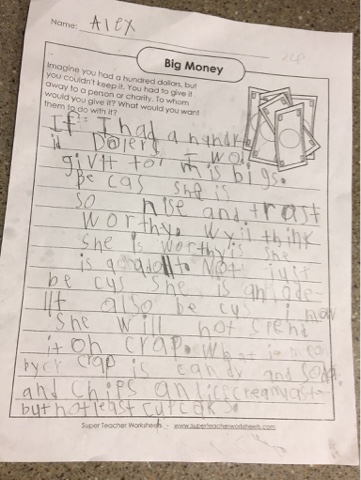 Name: Alex
Big Money
Imagine you had a hundred dollars, but
you couldn't keep it. You had to give it
away to a person or charity. To whom
would you give it? What would you want
them to do with it?
If I had a
Dolers I wol
giv it to mis bigs.
Be cas she is
so nise and trast
worthy. Wyii think
she is worthy is she
is a NOt just
be cys she is an ade-
llt also be cys i now
she will not spend
it on crap. What ie mean
by crap is candy and soda
and chips an icecream
but not least cupcaks.
Super Teacher Worksheets - www.superteacherworksheets.com